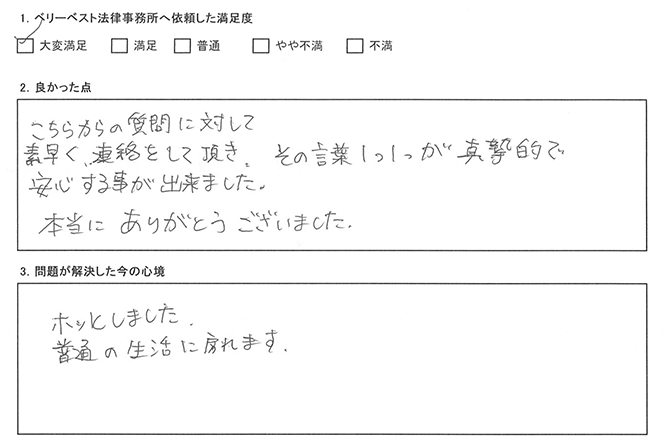 1. ベリーベスト法律事務所へ依頼した満足度
大変満足 満足 普通 やや不満 不満
2. 良かった点
こちらからの質問に対して
素早く連絡をして頂き、その言葉1つ1つが真摯的で
安心する事が出来ました。
本当にありがとうございました。
3. 問題が解決した今の心境
ホッとしました。
普通の生活に戻れます。